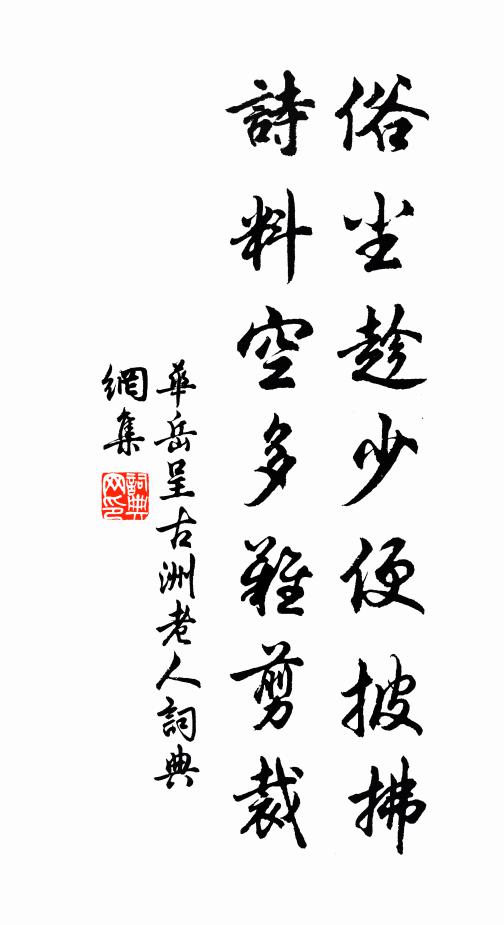 俗尘趁少便披拂
詩料空多難剪裁
華岳呈古洲老人詞典
網集
詞典
网印